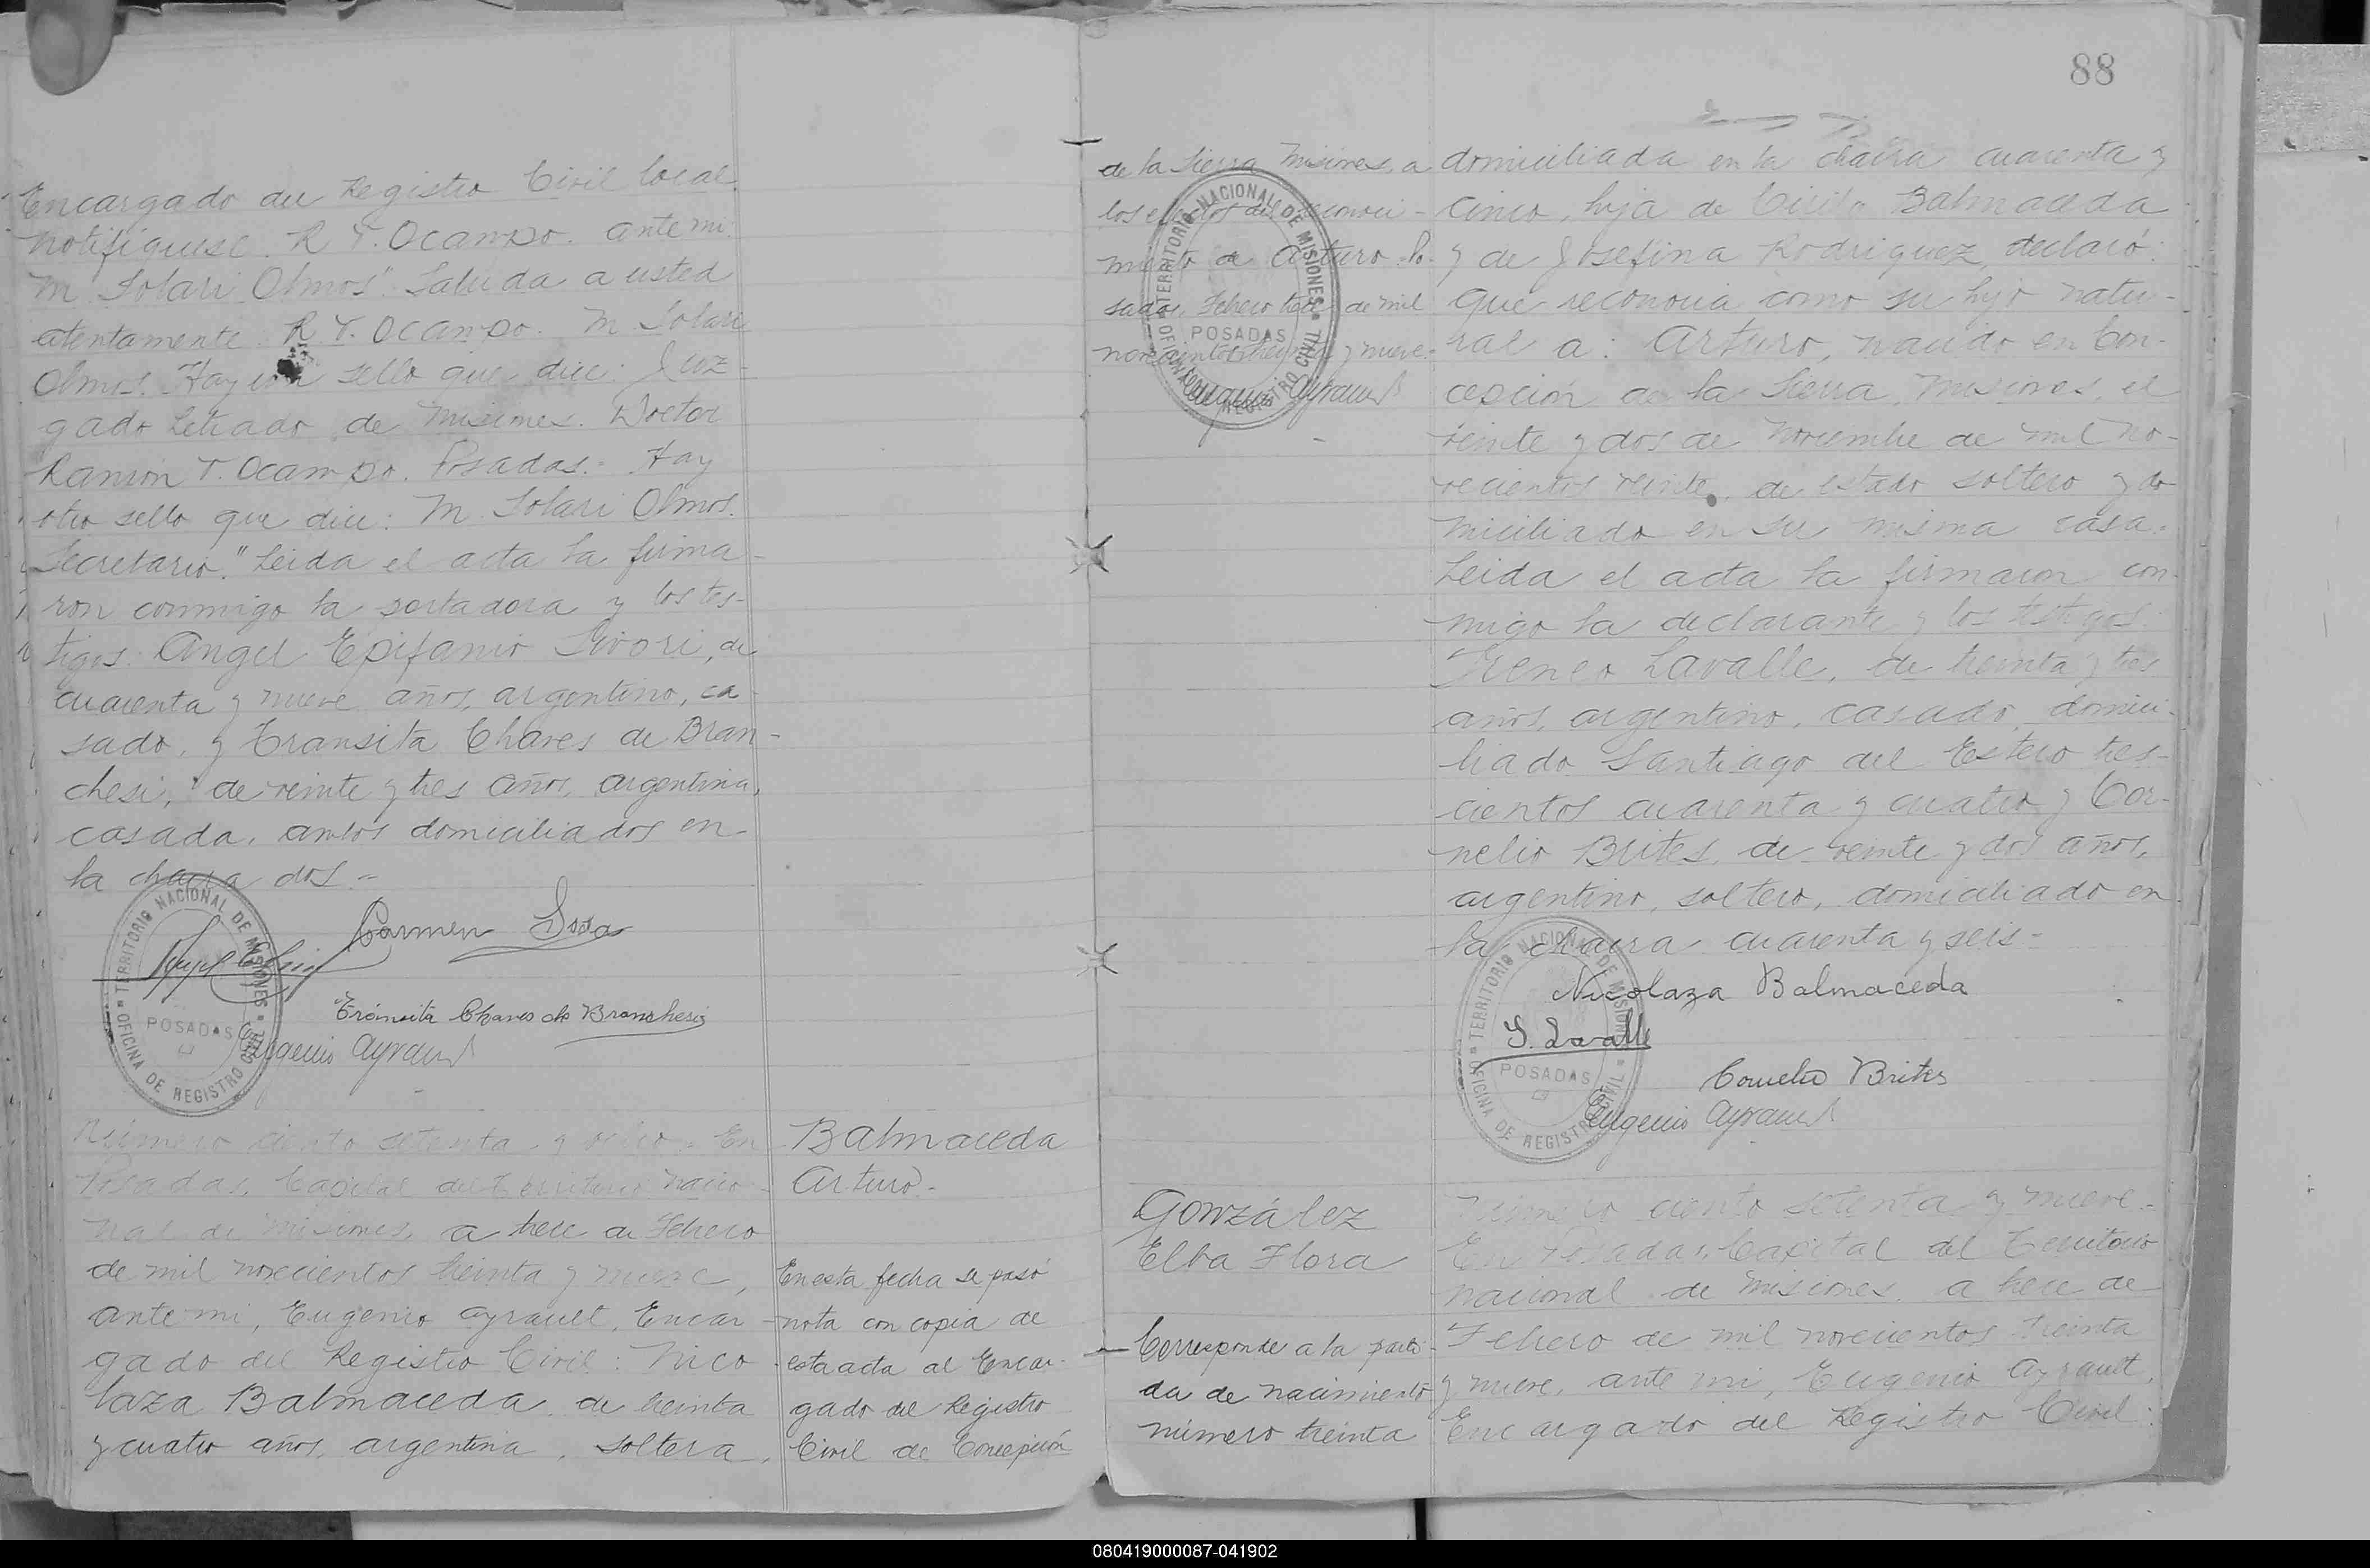 Encargado del Registro Civil local.
notifíquese. R T. Ocampo. ante mi.
M. Solari Olmos". Saluda a usted
atentamente. R T. Ocampo. M Solari
Olmos. Hay un sello que dice: Juz-
gado Letrado de Misiones. Doctor
Ramón T. Ocampo. Posadas.- Hay
otro sello que dice: M Solari Olmos.
Secretario." Leida el acta la firma-
ron conmigo la portadora y los tes-
tigos: Angel Epifanio Sívori, de
cuarenta y nueve años, argentino, ca-
sado, y Transita Chaves de Bran-
chesi, de veinte y tres años, argentina,
casada, ambos domiciliados en
la chacra dos.-
Carmen Sosa
Tránsita Chaves de Branchesi
Eugenio Ayrault
TERRITORIO NACIONAL DE MISIONES
POSADAS
OFICINA DE REGISTRO CIVIL
Número ciento setenta y ocho.- En
Posadas, Capital del Territorio Nacio-
nal de Misiones, a trece de Febrero
de mil novecientos treinta y nueve,
ante mi, Eugenio Ayrault, Encar-
gado del Registro Civil: Nico-
laza Balmaceda, de treinta
y cuatro años, argentina, soltera,
Balmaceda
Arturo.-
En esta fecha se pasó
nota con copia de
esta acta al Encar-
gado del Registro
Civil de Concepción
88
de la Sierra Misiones, a
los efectos del reconoci-
miento de Arturo. Po-
sadas, Febrero trece de mil
novecientos treinta y nueve.-
Eugenio Ayrault
TERRITORIO NACIONAL DE MISIONES
POSADAS
OFICINA DE REGISTRO CIVIL
domiciliada en la chacra cuarenta y
cinco, hija de Cirilo Balmaceda
y de Josefina Rodriguez, declaró:
que reconocia como su hijo natu-
ral a: Arturo, nacido en Con-
cepción de la Sierra, Misiones, el
veinte y dos de Noviembre de mil no-
vecientos veinte, de estado soltero y do
miciliado en su misma casa.
Leida el acta la firmaron con-
migo la declarante y los testigos:
Ireneo Lavalle, de treinta y tres
años, argentino, casado, domici-
liado Santiago del Estero tres-
cientos cuarenta y cuatro y Cor-
nelio Brites, de veinte y dos años,
argentino, soltero, domiciliado en
la chacra cuarenta y seis.-
Nicolaza Balmaceda
I. Lavalle
Cornelio Brites
Eugenio Ayrault
TERRITORIO NACIONAL DE MISIONES
POSADAS
OFICINA DE REGISTRO CIVIL
González
Elba Flora
Corresponde a la parti-
da de nacimiento
número treinta
Número ciento setenta y nueve.-
En Posadas, Capital del Territorio
Nacional de Misiones, a trece de
Febrero de mil novecientos treinta
y nueve, ante mi, Eugenio Ayrault,
Encargado del Registro Civil:
080419000087-041902